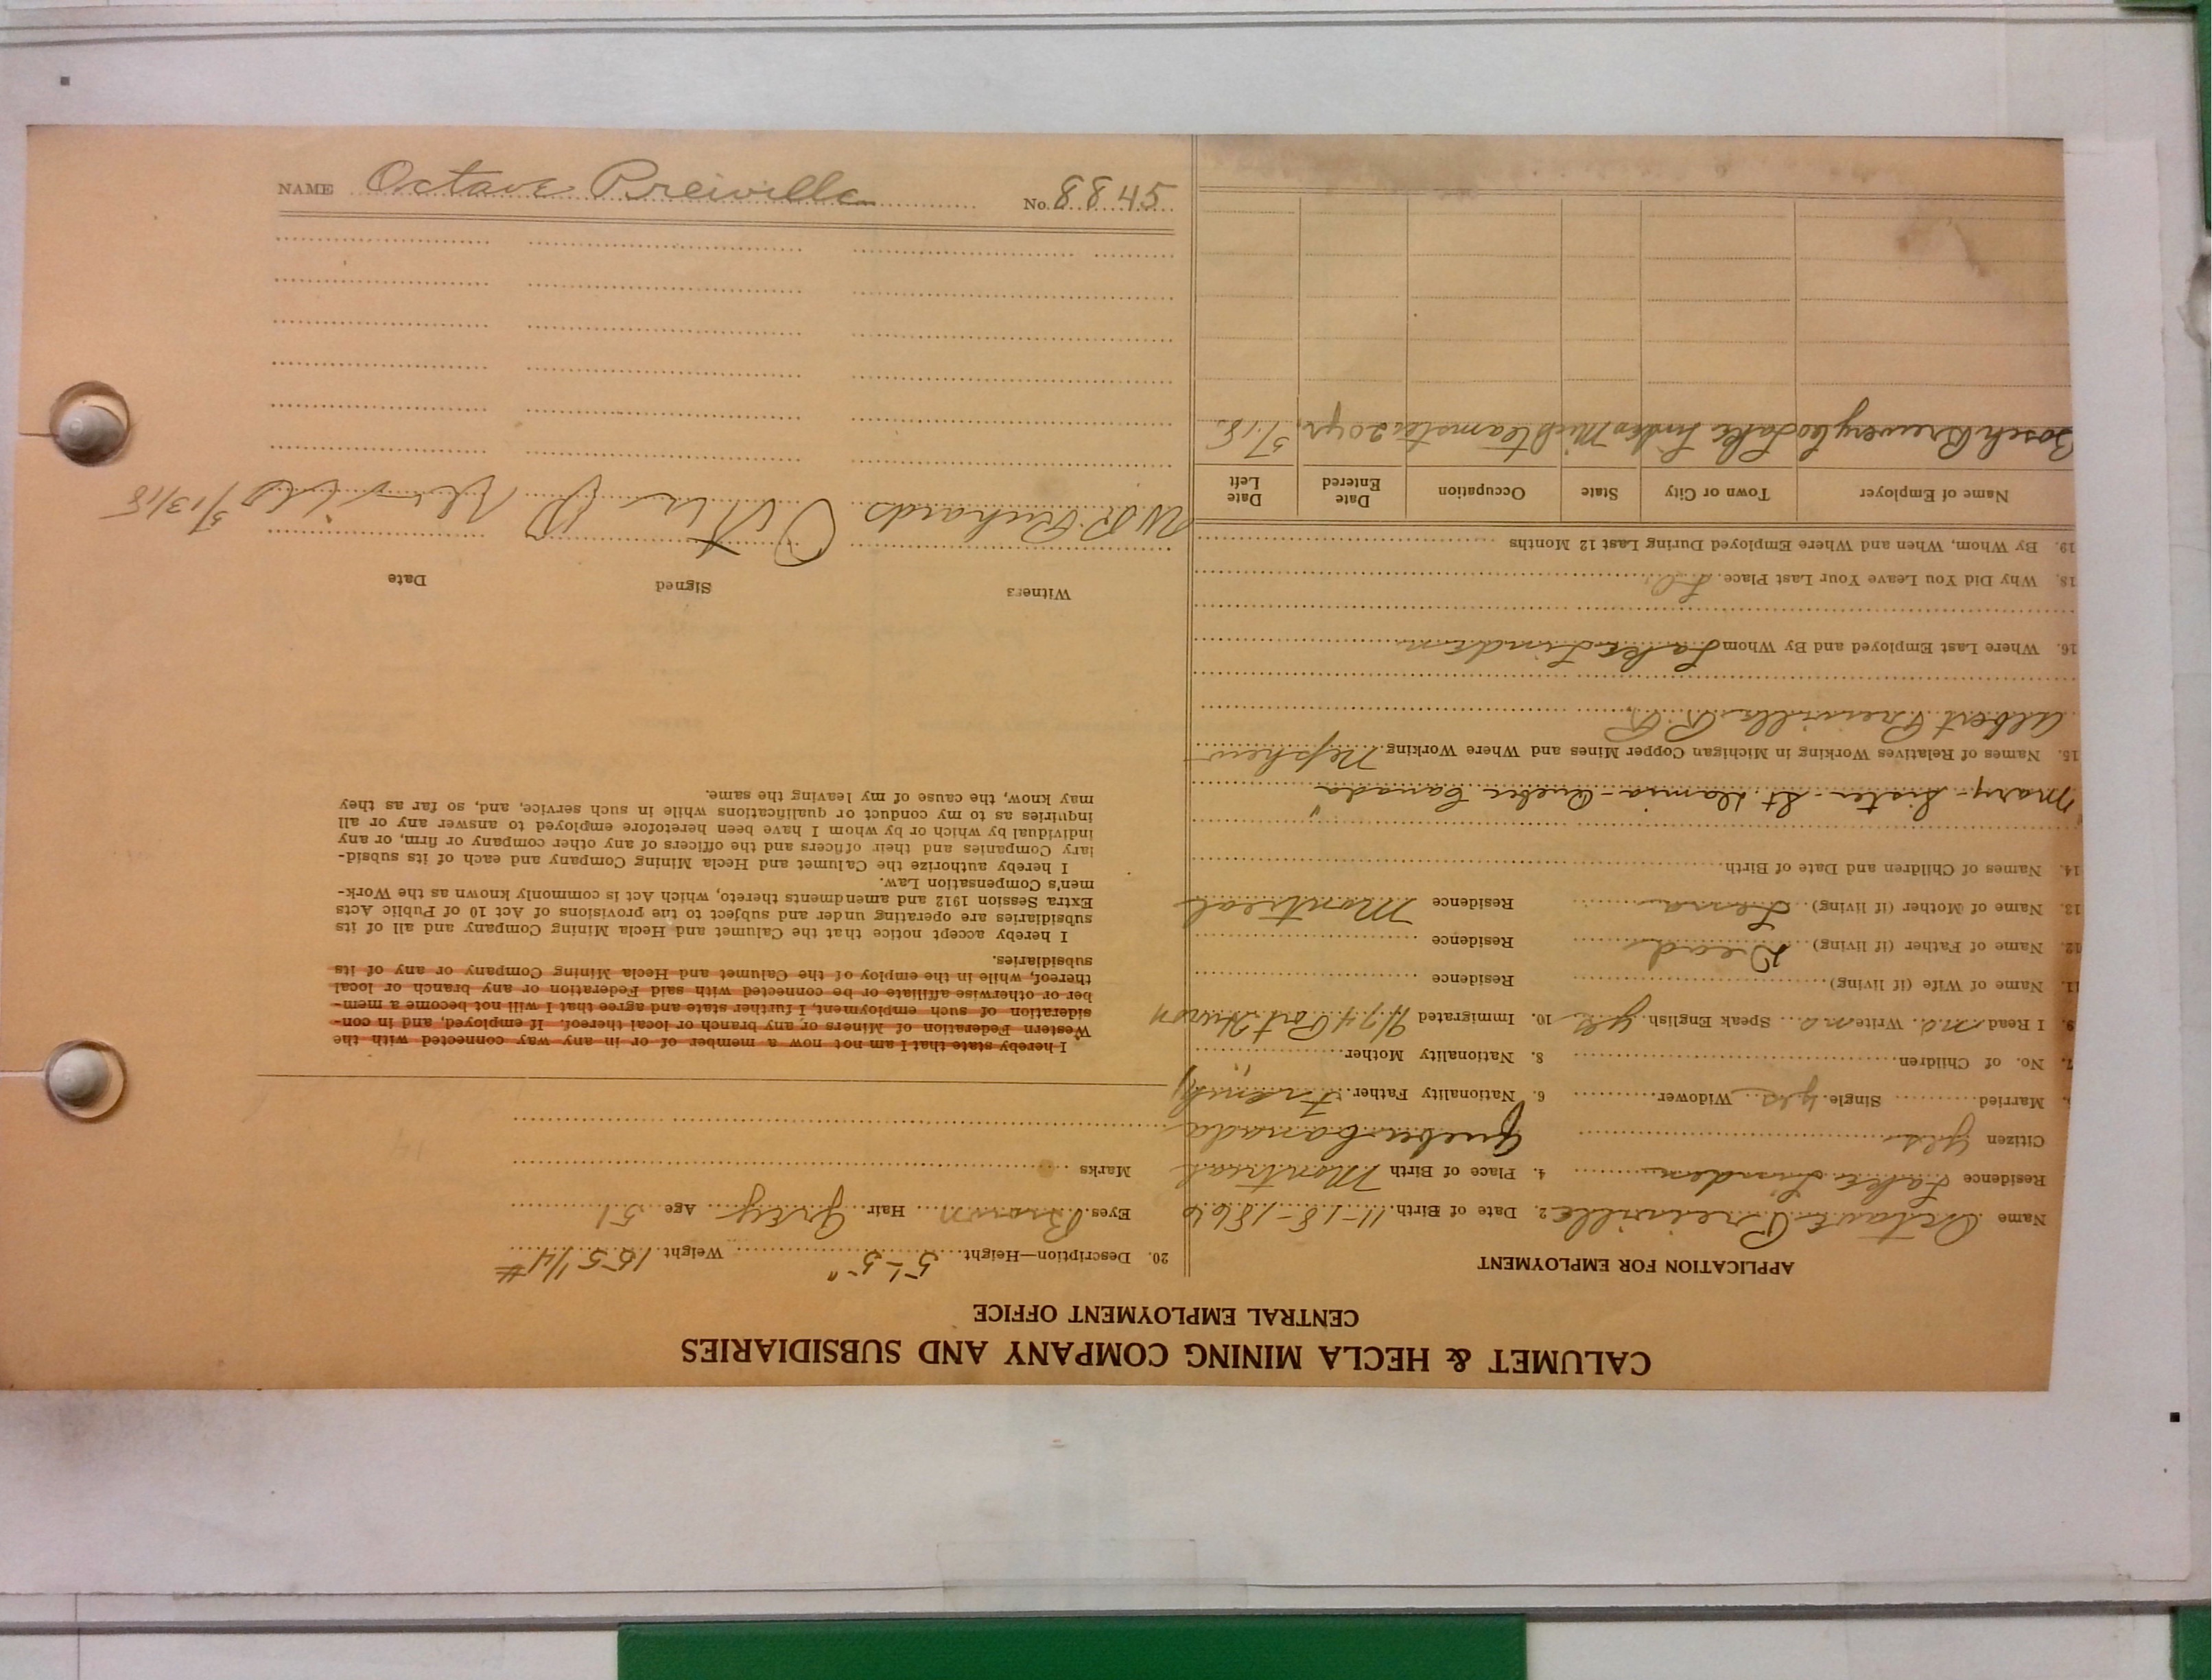 CALUMET & HECLA MINING COMPANY AND SUBSIDIARIES
CENTRAL EMPLOYMENT OFFICE
APPLICATION FOR EMPLOYMENT
Name Octave Preiville 2. Date of Birth 11-18-1866
Residence Lake Linden 4. Place of Birth Montreal
Citizen yes Quebec Canada
Married Single yes Widower 6. Nationality Father French
7. No. of Children 8. Nationality Mother "
9. I Read no Write no Speak English yes 10. Immigrated Port Huron
11. Name of Wife (if living) Residence
12. Name of Father (if living) Dead Residence
13. Name of Mother (if living) Residence Montreal
14. Names of Children and Date of Birth
Mary - Sister - St - Quebec Canada
15. Names of Relatives Working in Michigan Copper Mines and Where Working Nephew
Albert Preiville R.R.
16. Where Last Employed and By Whom Lake Linden
18. Why Did You Leave Your Last Place
19. By Whom, When and Where Employed During Last 12 Months
Name of Employer Town or City State Occupation Date Entered Date Left
Bosch Brewery Co Lake Linden Mich Teamster 20 yr. 5/18
20. Description—Height 5'-5" Weight 155 1/4 #
Eyes Brown Hair Grey Age 51
Marks
I hereby state that I am not now a member of or in any way connected with the
Western Federation of Miners or any branch or local thereof. If employed, and in con-
sideration of such employment, I further state and agree that I will not become a mem-
ber or otherwise affiliate or be connected with said Federation or any branch or local
thereof, while in the employ of the Calumet and Hecla Mining Company or any of its
subsidiaries.
I hereby accept notice that the Calumet and Hecla Mining Company and all of its
subsidiaries are operating under and subject to the provisions of Act 10 of Public Acts
Extra Session 1912 and amendments thereto, which Act is commonly known as the Work-
men's Compensation Law.
I hereby authorize the Calumet and Hecla Mining Company and each of its subsid-
iary Companies and their officers and the officers of any other company or firm, or any
individual by which or by whom I have been heretofore employed to answer any or all
inquiries as to my conduct or qualifications while in such service, and, so far as they
may know, the cause of my leaving the same.
Witness Signed Date
W. R. Richards 5/13/18
NAME Octave Preiville No. 8845